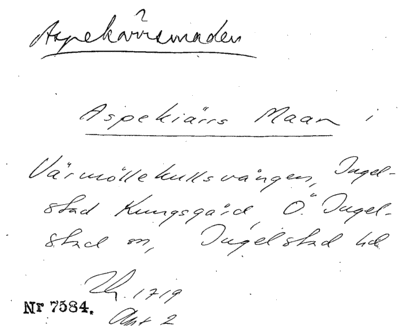 ?
Aspekärrsmaden
Aspekiärrs Maan i
Värmöllekullsvången, Ingel-
stad Kungsgård, Ö. Ingel-
stad sn, Ingelstad hd
1719
Akt 2
Nr 7584.